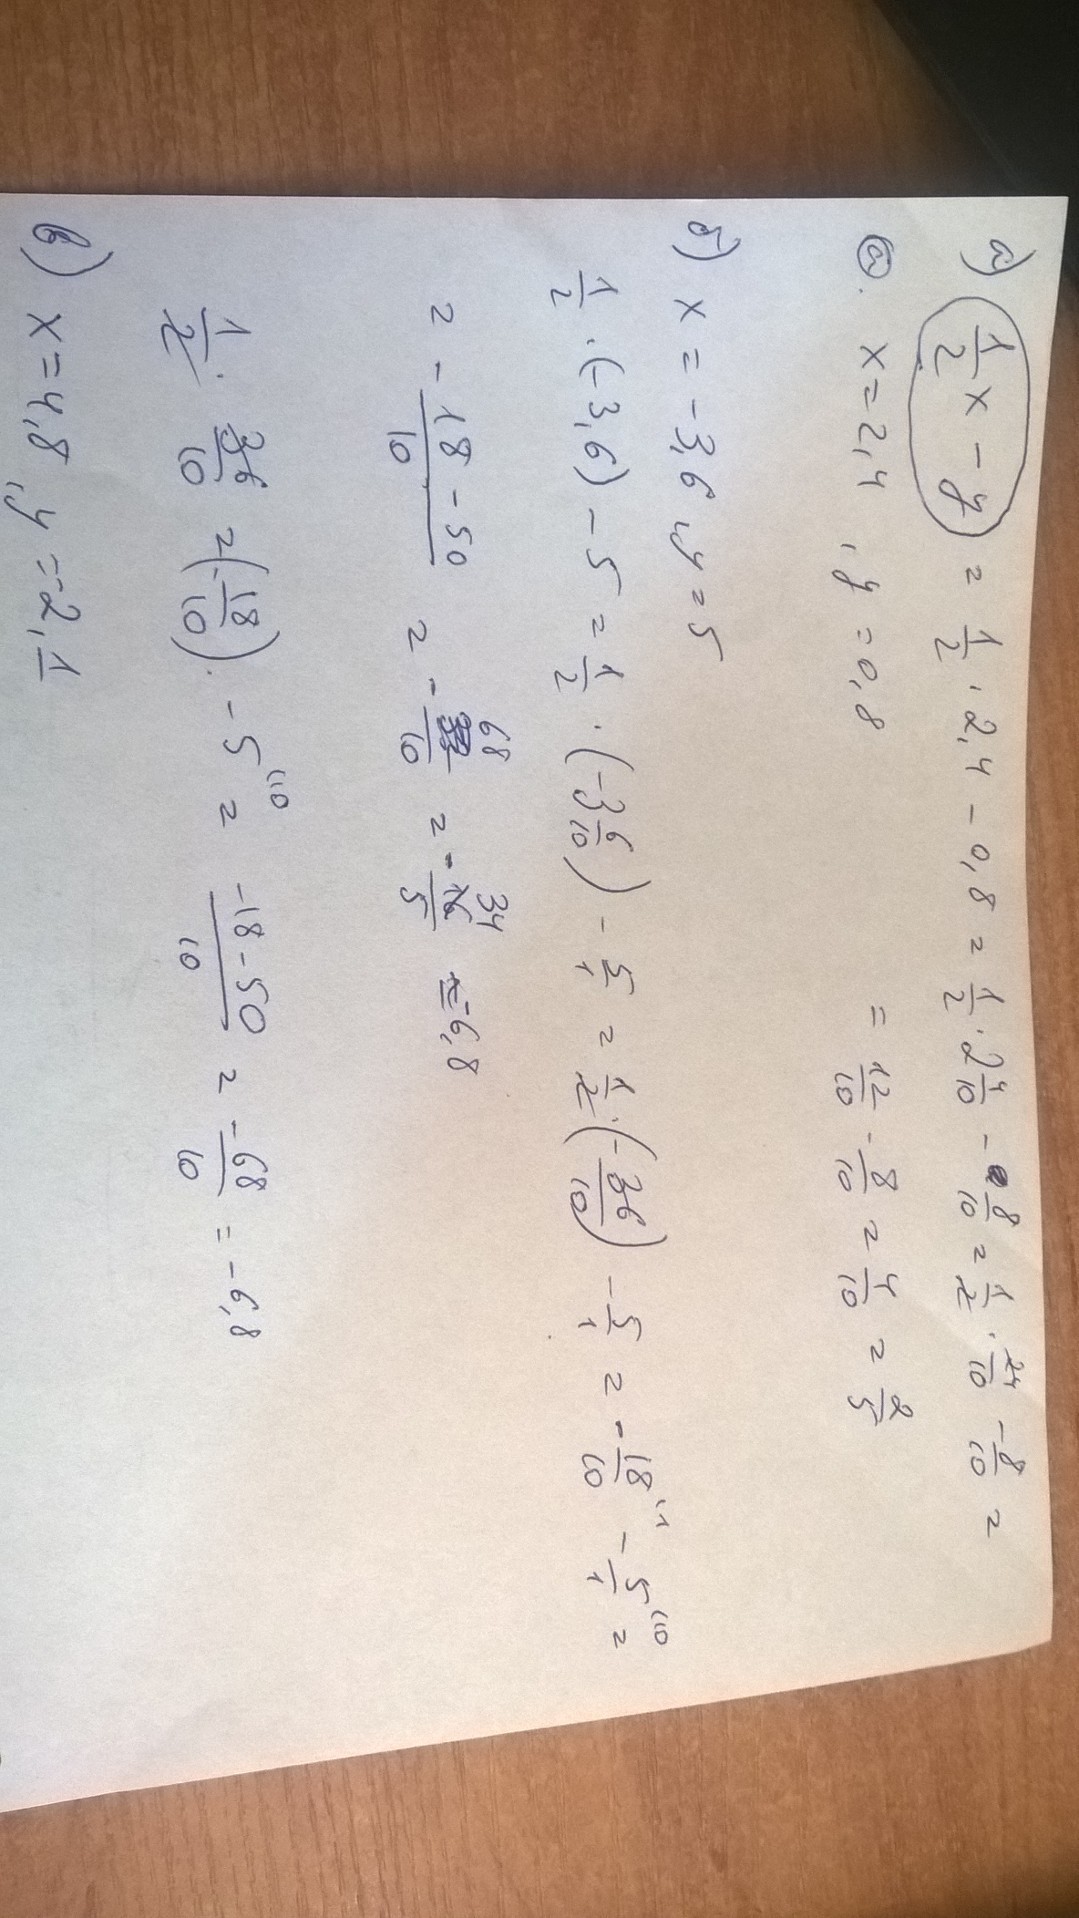 а) 1/2 x - y = 1/2 · 2,4 - 0,8 = 1/2 · 2 4/10 - 8/10 = 1/2 · 24/10 - 8/10 =
а. x = 2,4, y = 0,8 = 12/10 - 8/10 = 4/10 = 2/5
б) x = -3,6, y = 5
1/2 · (-3,6) - 5 = 1/2 · (-3 6/10) - 5/1 = 1/2 · (-36/10) - 5/1 = - 18/10 (1 - 5/1 (10 =
= - 18 - 50/10 = - 68/10 = - 34/5 = -6,8
1/2 · 36/10 = (-18/10) · - 5 (10 = -18-50/10 = - 68/10 = - 6,8
в) x = 4,8, y = -2,1